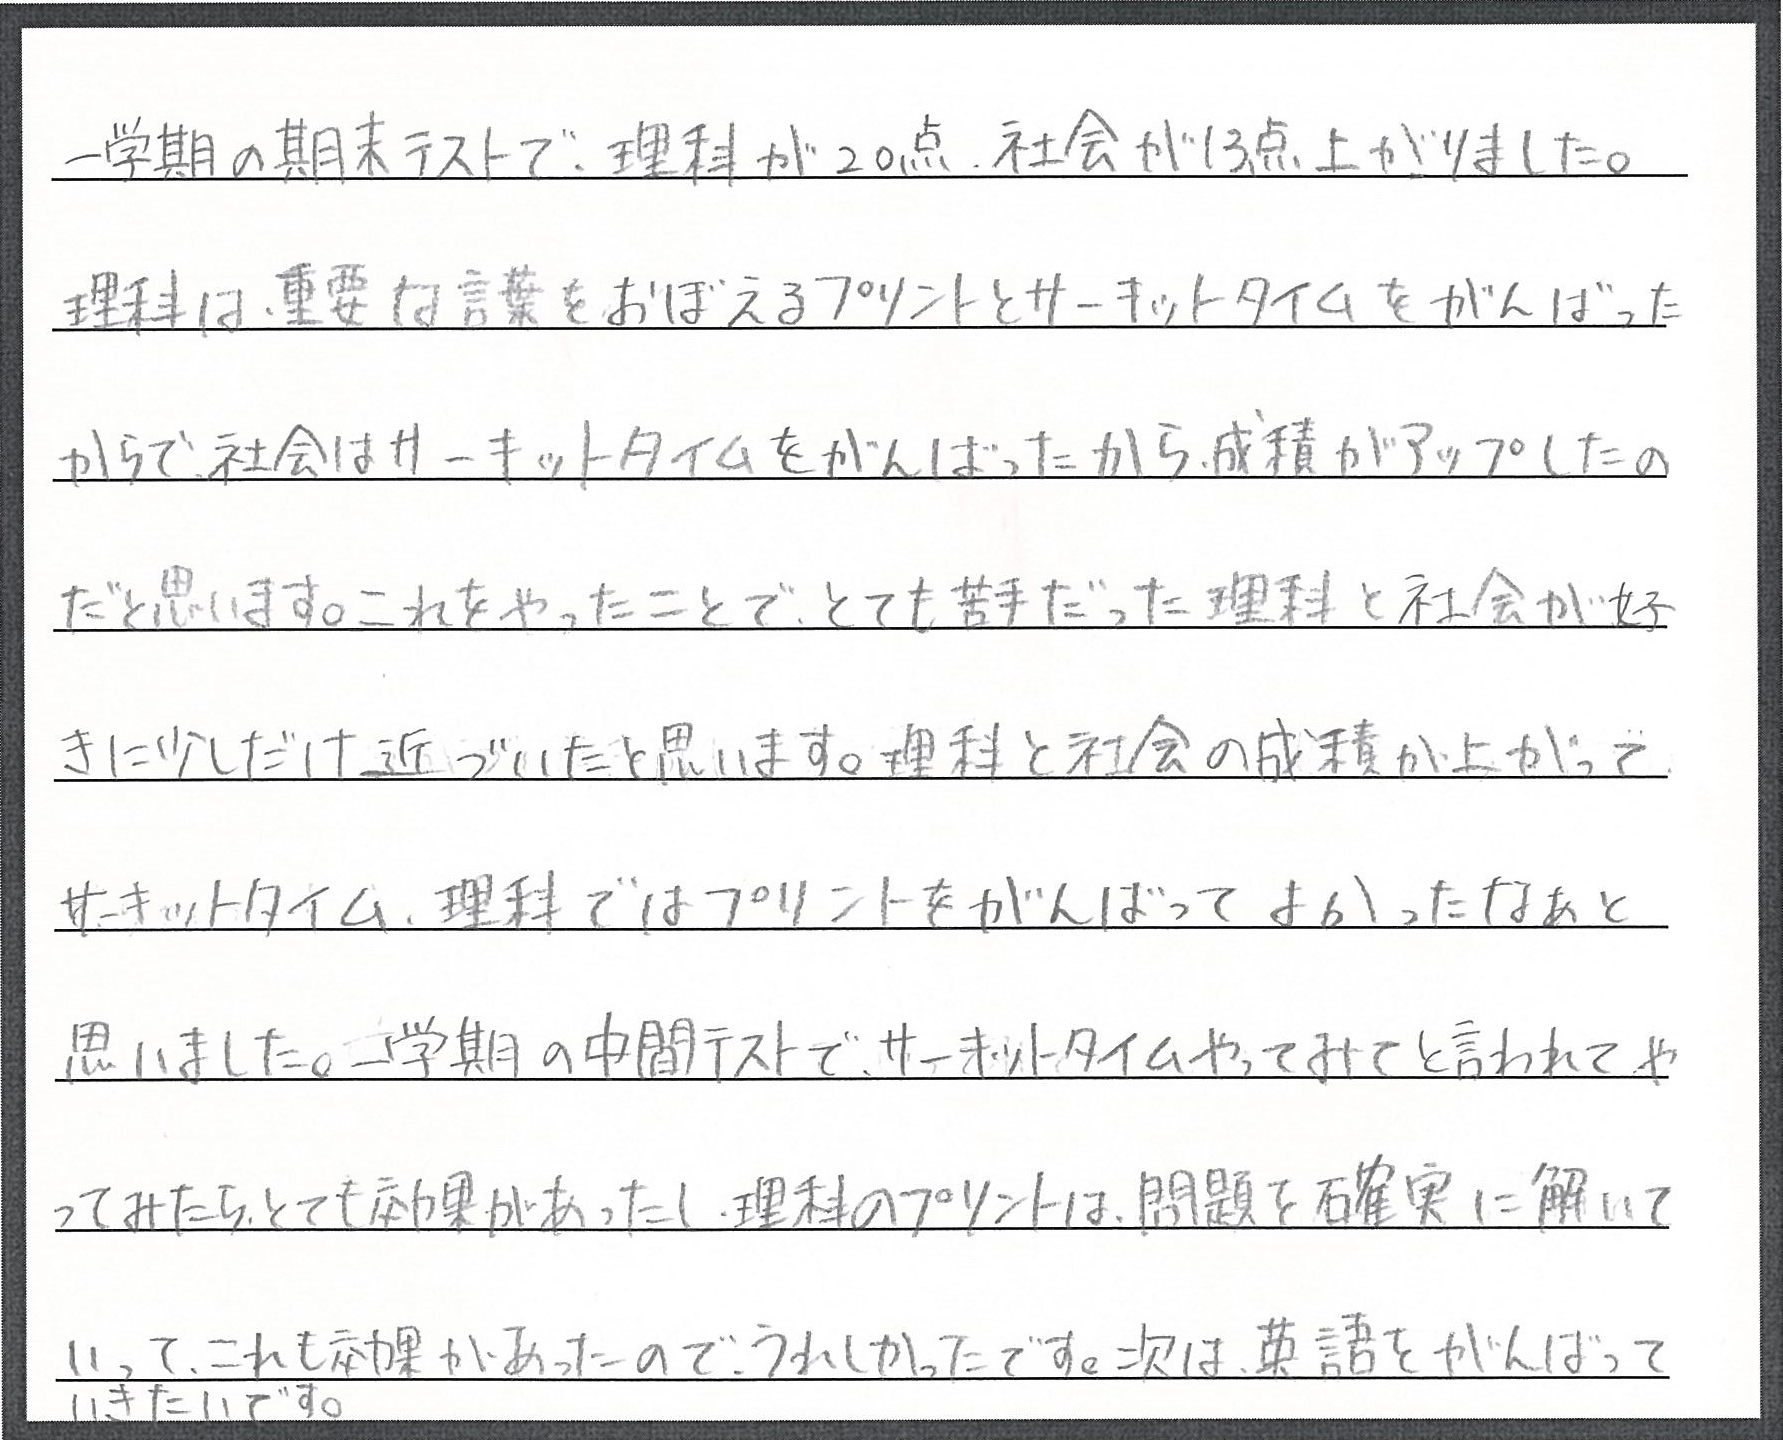 一学期の期末テストで、理科が20点、社会が13点上がりました。
理科は、重要な言葉をおぼえるプリントとサーキットタイムをがんばった
からで、社会はサーキットタイムをがんばったから、成積がアップしたの
だと思います。これをやったことで、とても苦手だった理科と社会が好
きに少しだけ近づいたと思います。理科と社会の成積が上がって、
サーキットタイム、理科ではプリントをがんばってよかったなぁと
思いました。二学期の中間テストで、サーキットタイムやってみてと言われてや
ってみたら、とても効果があったし、理科のプリントは、問題を確実に解いて
いって、これも効果があったので、うれしかったです。次は、英語をがんばって
いきたいです。